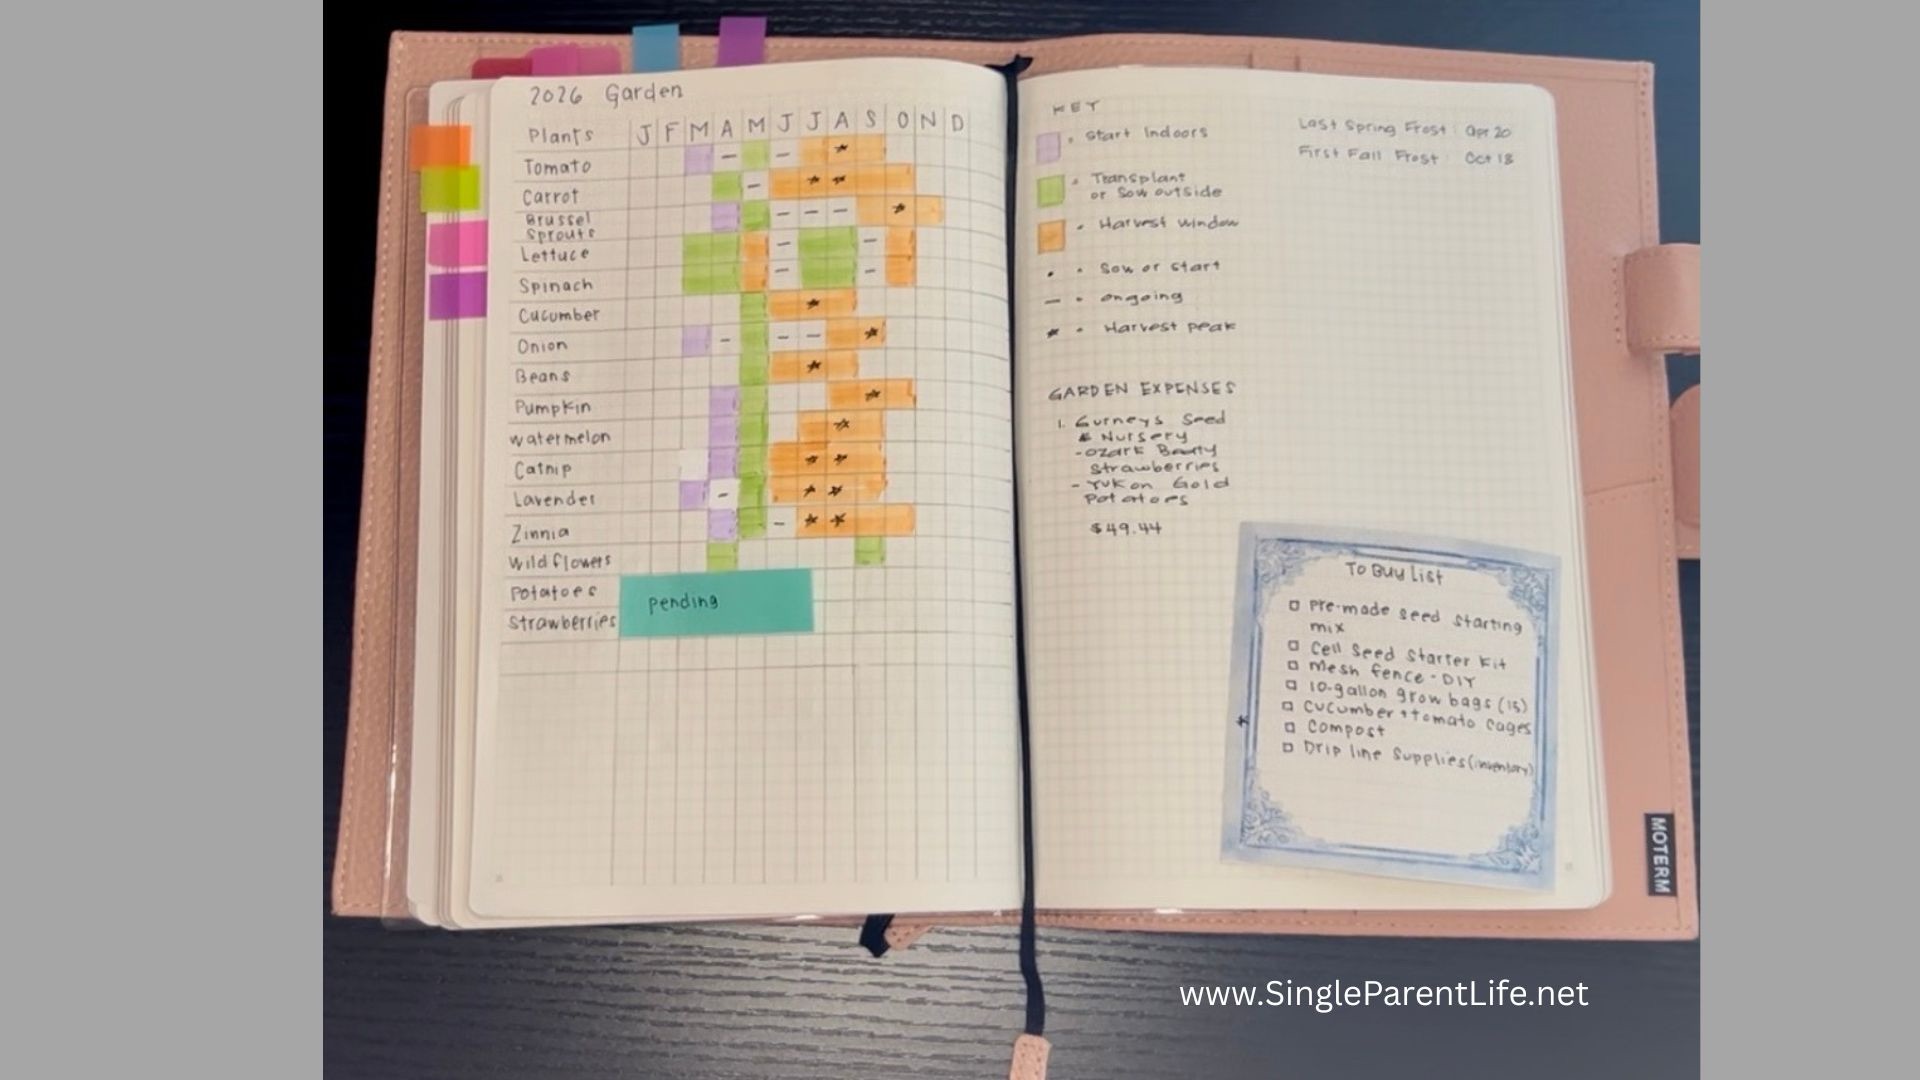 2026 Garden
Plants J F M A M J J A S O N D
Tomato
Carrot
Brussel
Sprouts
Lettuce
Spinach
Cucumber
Onion
Beans
Pumpkin
Watermelon
Catnip
Lavender
Zinnia
Wild flowers
Potatoes
Strawberries
pending
KEY
Start Indoors
Transplant
or Sow outside
Harvest window
Sow or start
ongoing
Harvest peak
Last Spring Frost: Apr 20
First Fall Frost: Oct 18
GARDEN EXPENSES
1. Gurneys Seed
& Nursery
- Ozark Beauty
Strawberries
- Yukon Gold
Potatoes
$49.44
To Buy List
Pre-made seed starting
mix
Cell Seed Starter Kit
Mesh fence - DIY
10-gallon grow bags (15)
Cucumber + tomato cages
Compost
Drip line supplies (inventory)
MOTERM
www.SingleParentLife.net